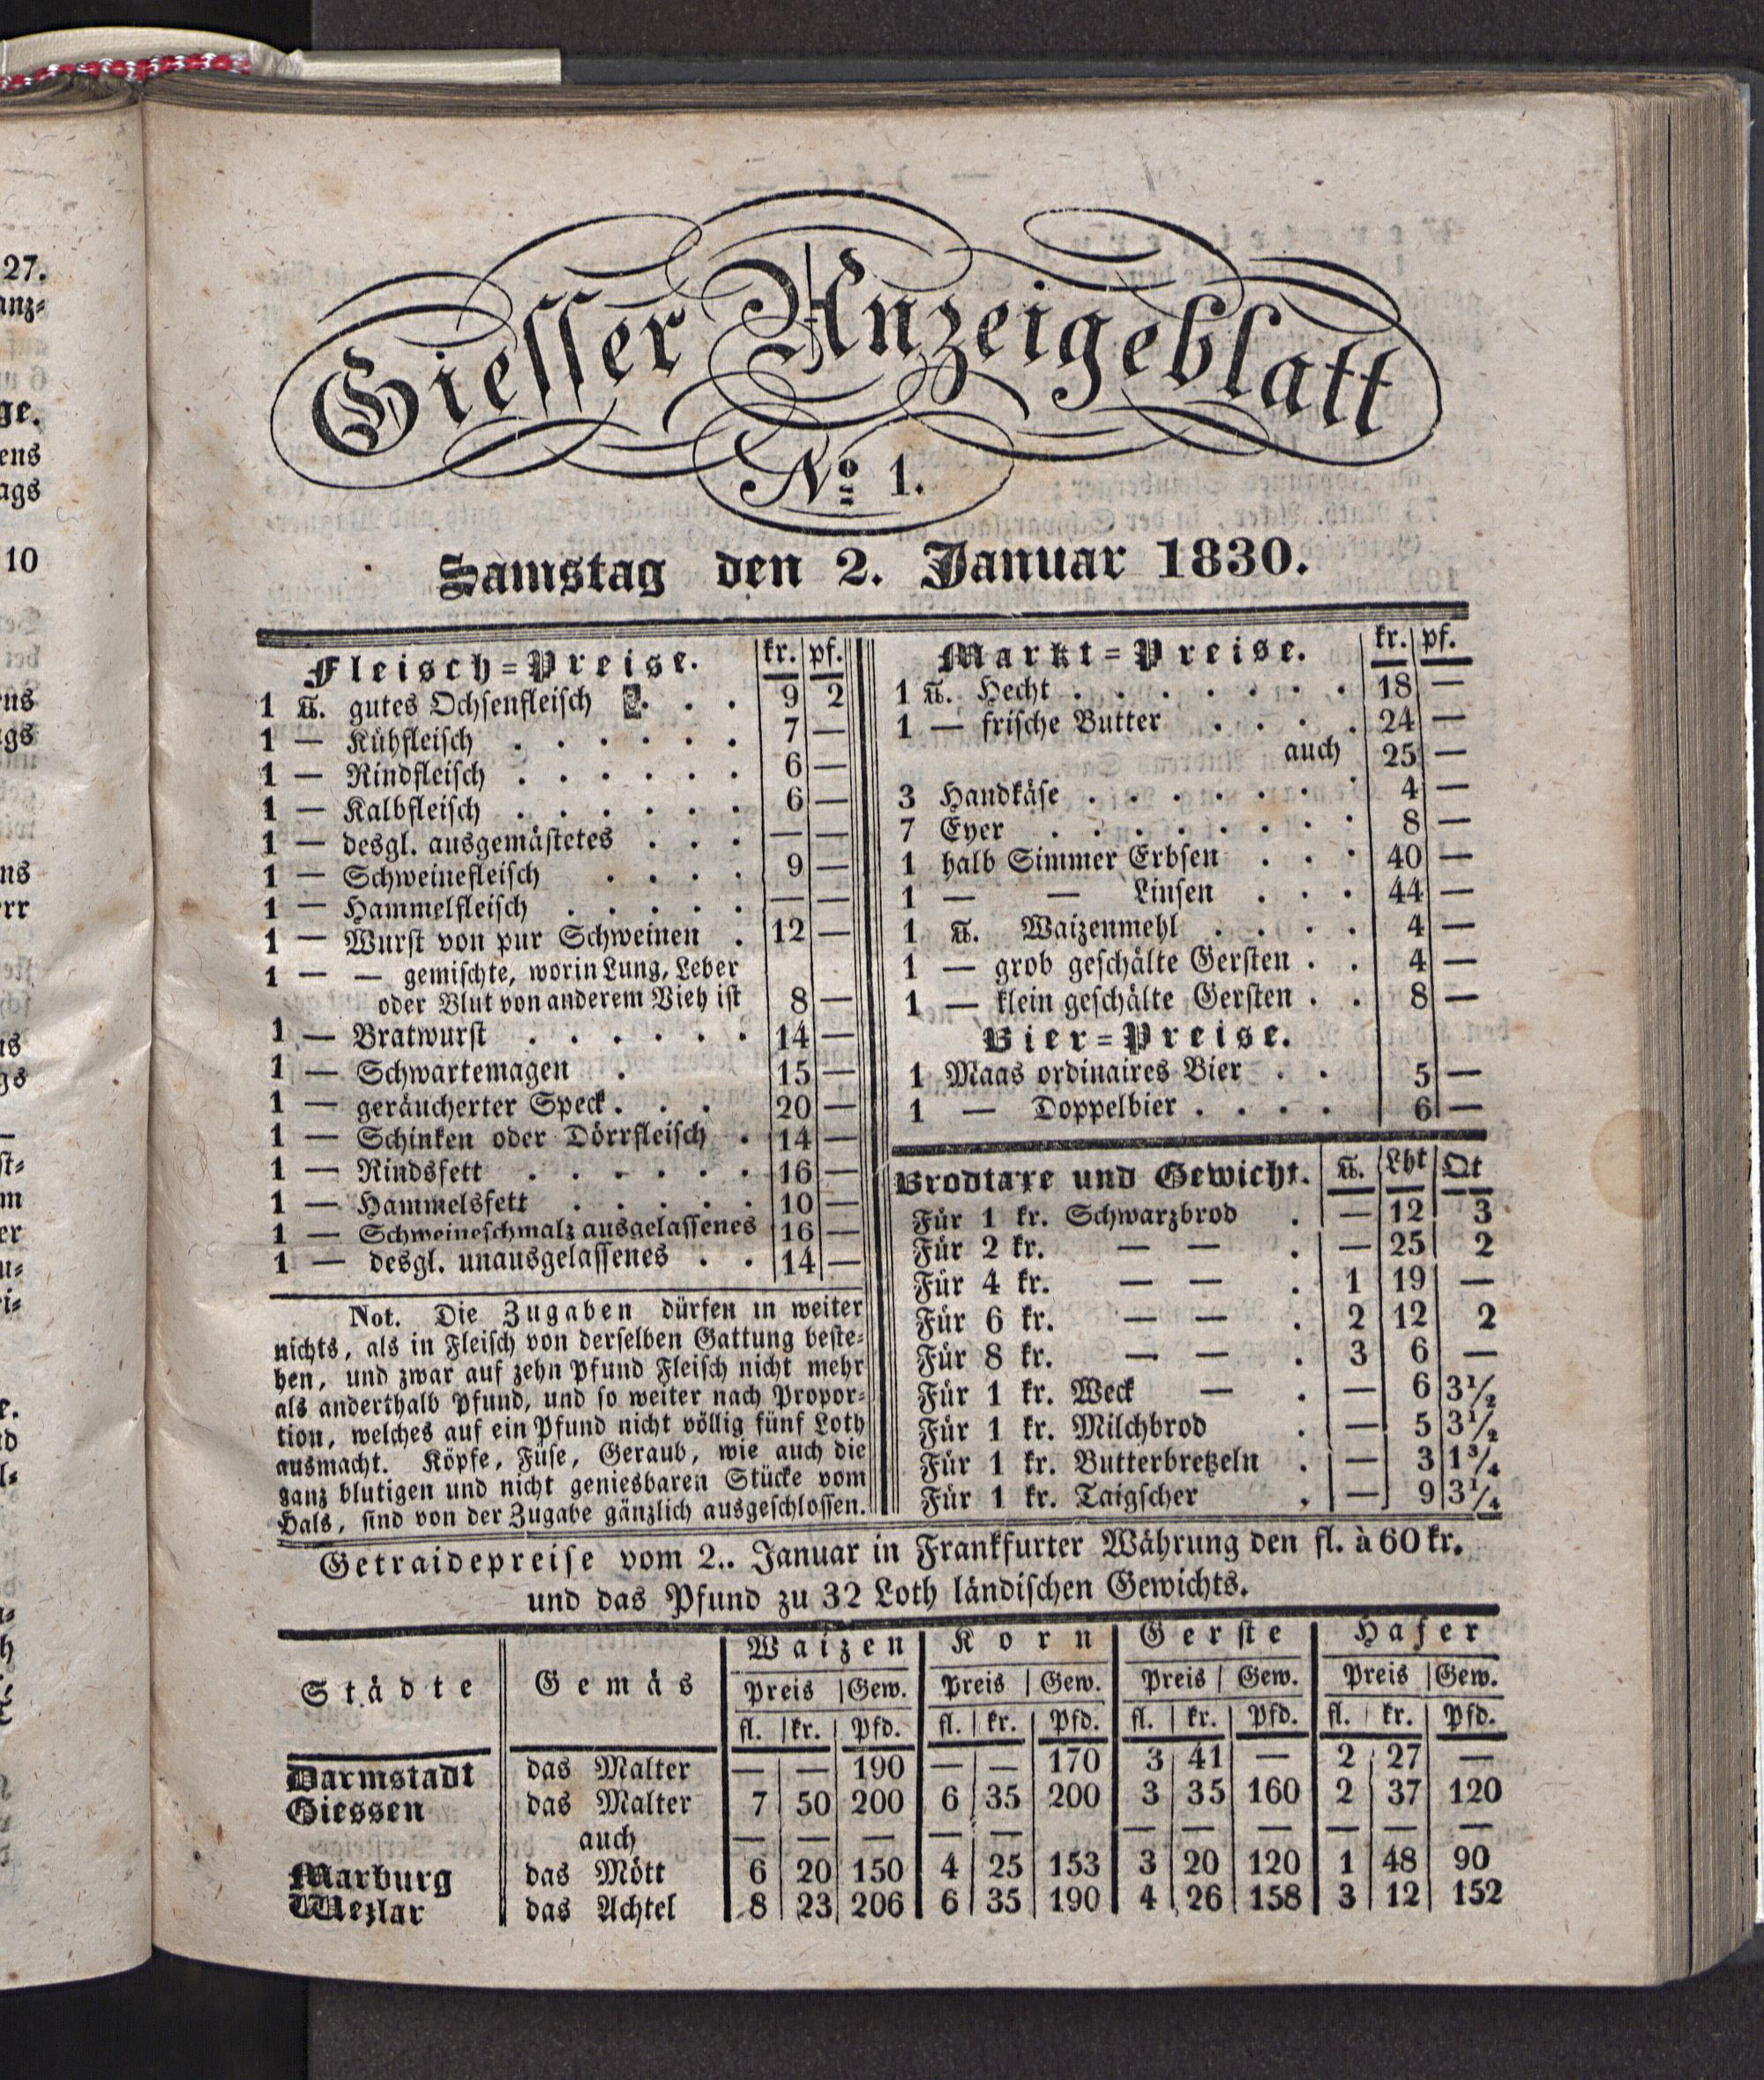 Giesser Anzeigeblatt
No 1.
Samstag den 2. Januar 1830.
Fleisch=Preise. kr. pf.
1 ℔. gutes Ochsenfleisch . . . 9 2
1 — Kühfleisch . . . . . . 7 —
1 — Rindfleisch . . . . . . 6 —
1 — Kalbfleisch . . . . . . 6 —
1 — desgl. ausgemästetes . . . — —
1 — Schweinefleisch . . . . 9 —
1 — Hammelfleisch . . . . . — —
1 — Wurst von pur Schweinen . 12 —
1 — — gemischte, worin Lung, Leber
oder Blut von anderem Vieh ist 8 —
1 — Bratwurst . . . . . . 14 —
1 — Schwartemagen . 15 —
1 — geräucherter Speck . . . 20 —
1 — Schinken oder Dörrfleisch . 14 —
1 — Rindsfett . . . . . . 16 —
1 — Hammelsfett . . . . . 10 —
1 — Schweineschmalz ausgelassenes 16 —
1 — desgl. unausgelassenes . . 14 —
Not. Die Zugaben dürfen in weiter
nichts, als in Fleisch von derselben Gattung beste=
hen, und zwar auf zehn Pfund Fleisch nicht mehr
als anderthalb Pfund, und so weiter nach Propor=
tion, welches auf ein Pfund nicht völlig fünf Loth
ausmacht. Köpfe, Füse, Geraub, wie auch die
ganz blutigen und nicht geniesbaren Stücke vom
Hals, sind von der Zugabe gänzlich ausgeschlossen.
Markt=Preise. kr. pf.
1 ℔. Hecht . . . . . . . 18 —
1 — frische Butter . . . . 24 —
auch 25 —
3 Handkäse . . . . . . . 4 —
7 Eyer . . . . . . . . 8 —
1 halb Simmer Erbsen . . . 40 —
1 — — Linsen . . . 44 —
1 ℔. Waizenmehl . . . . 4 —
1 — grob geschälte Gersten . . 4 —
1 — klein geschälte Gersten . . 8 —
Bier=Preise.
1 Maas ordinaires Bier . . 5 —
1 — Doppelbier . . . . 6 —
Brodtaxe und Gewicht. ℔. Lht Qt
Für 1 kr. Schwarzbrod . — 12 3
Für 2 kr. — — . — 25 2
Für 4 kr. — — . 1 19 —
Für 6 kr. — — . 2 12 2
Für 8 kr. — — . 3 6 —
Für 1 kr. Weck — . — 6 3½
Für 1 kr. Milchbrod . — 5 3½
Für 1 kr. Butterbretzeln . — 3 1¾
Für 1 kr. Taigscher . — 9 3¼
Getraidepreise vom 2.. Januar in Frankfurter Währung den fl. à 60 kr.
und das Pfund zu 32 Loth ländischen Gewichts.
Städte Gemäs Waizen Korn Gerste Hafer
Preis Gew. Preis Gew. Preis Gew. Preis Gew.
fl. kr. Pfd. fl. kr. Pfd. fl. kr. Pfd. fl. kr. Pfd.
Darmstadt das Malter — — 190 — — 170 3 41 — 2 27 —
Giessen das Malter 7 50 200 6 35 200 3 35 160 2 37 120
auch — — — — — — — — — — —
Marburg das Mött 6 20 150 4 25 153 3 20 120 1 48 90
Wezlar das Achtel 8 23 206 6 35 190 4 26 158 3 12 152